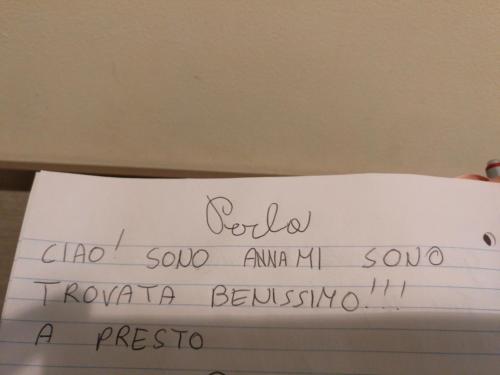 Perla
CIAO! SONO ANNA MI SONO
TROVATA BENISSIMO!!!
A PRESTO